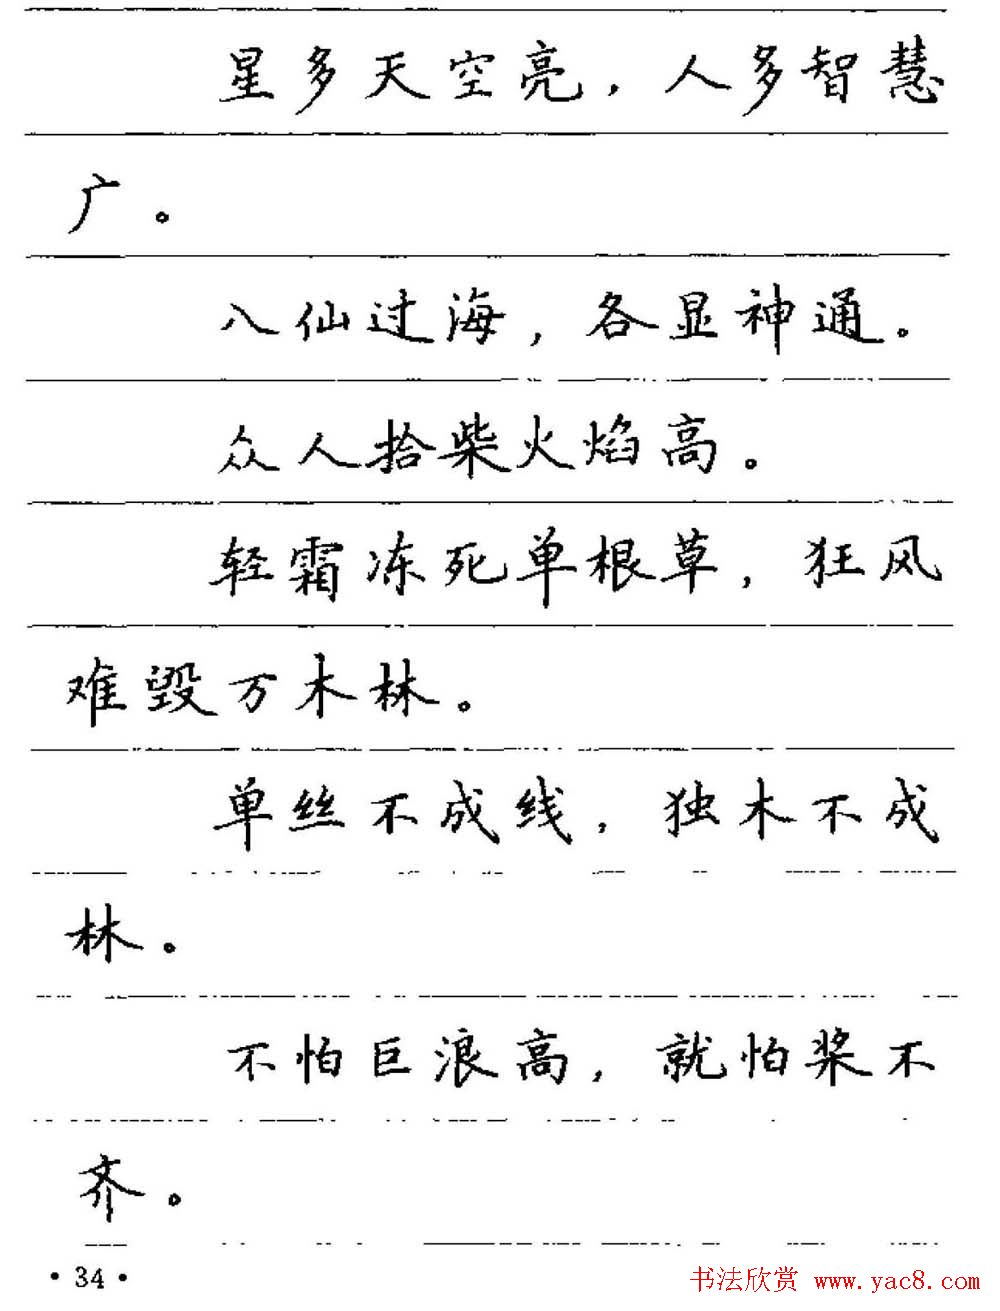 星多天空亮，人多智慧
广。
八仙过海，各显神通。
众人拾柴火焰高。
轻霜冻死单根草，狂风
难毁万木林。
单丝不成线，独木不成
林。
不怕巨浪高，就怕桨不
齐。
·34·
书法欣赏 www.yac8.com